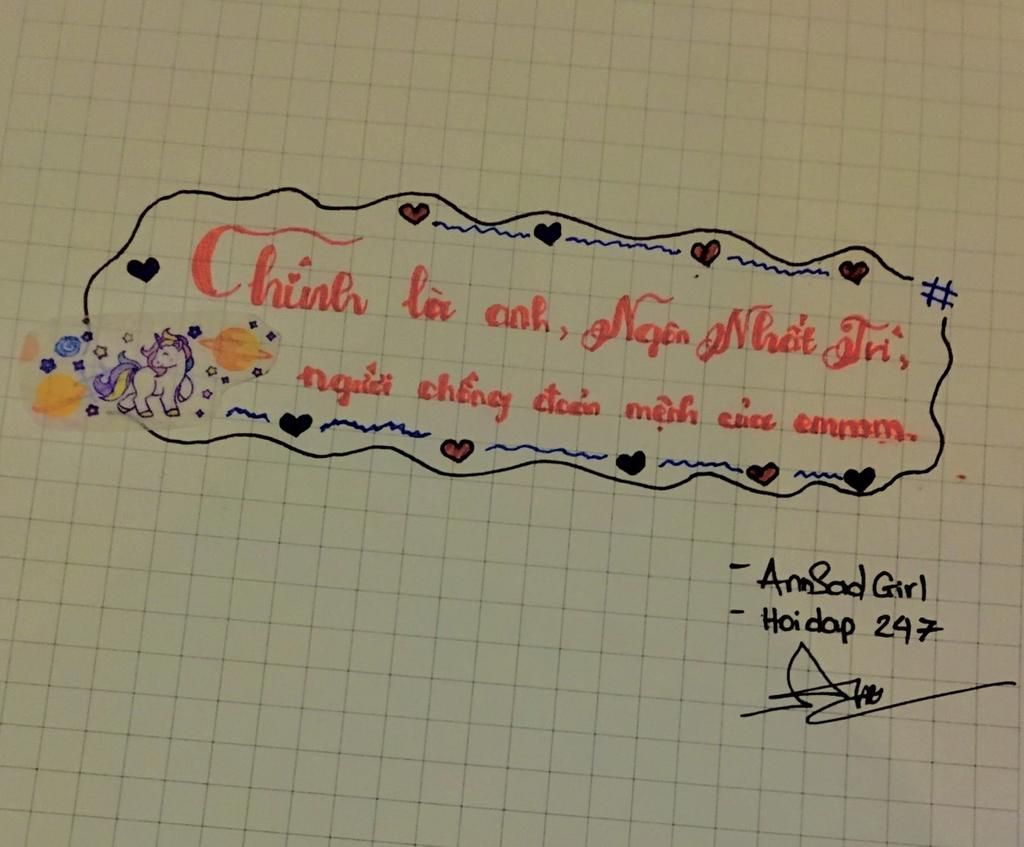 Chính là anh, Ngôn Nhất Trì,
người chồng đoản mệnh của emmm.
#
- AnnSadGirl
- Hoidap 247